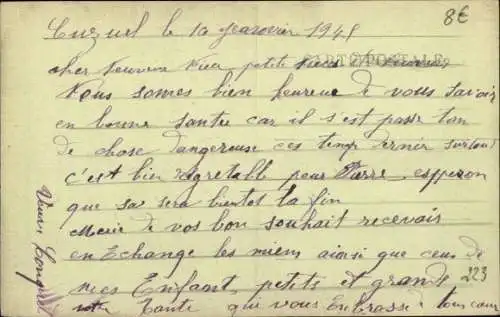 8€
le 10 Janvier 1945
CARTE POSTALE
cher neuveu petite
Nous somes bien heureuse de vous savoir
en bonne santée car il s'est passe tan
de chose dangereuse ces temp dernier surtout
c'est bien regretable pour Pierre, esperon
que sa sera bientot la fin
Merci de vos bon souhait recevoir
en Echange les miens ainsi que ceux de
mes Enfant petits et grands 223
votre Tante qui vous Enbrasse
Veuve